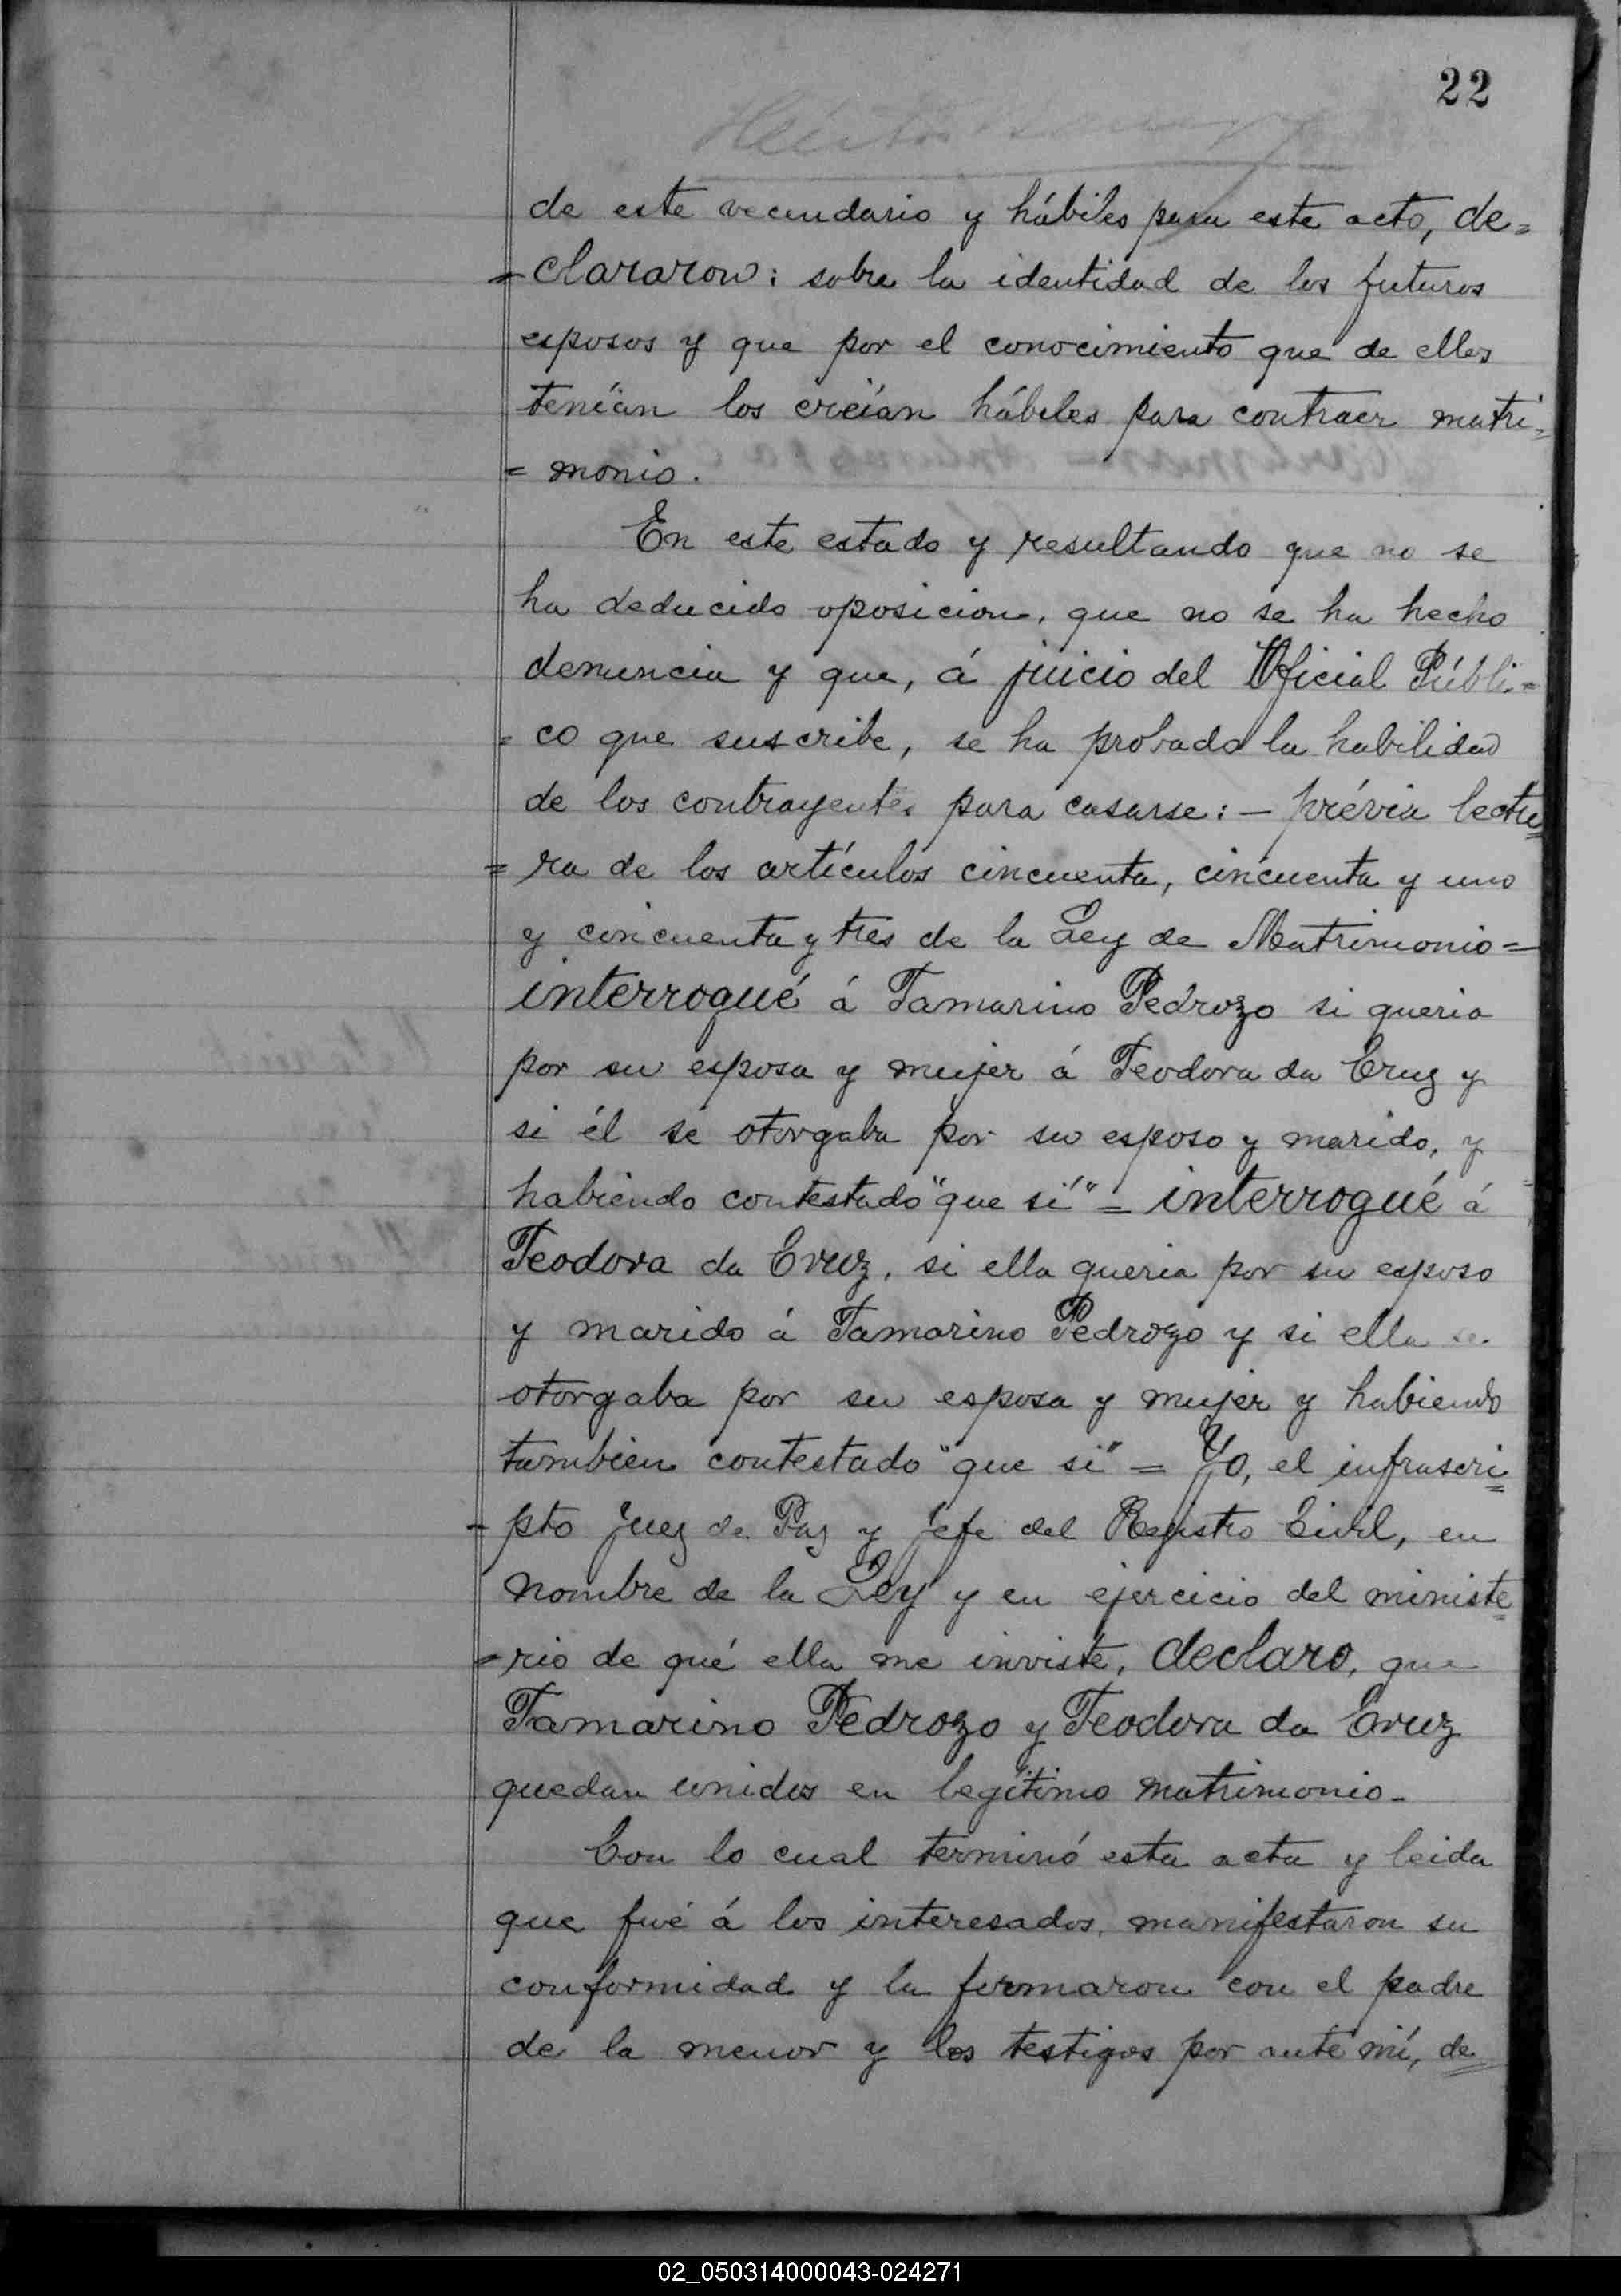 22
de este vecindario y hábiles para este acto, de=
=clararon: sobre la identidad de los futuros
esposos y que por el conocimiento que de ellos
tenían los creían hábiles para contraer matri=
=monio.
En este estado y resultando que no se
ha deducido oposicion, que no se ha hecho
denuncia y que, á juicio del Oficial Públi=
=co que suscribe, se ha probado la habilidad
de los contrayentes para casarse: — prévia lectu=
=ra de los artículos cincuenta, cincuenta y uno
y cincuenta y tres de la Ley de Matrimonio=
interrogué á Tamarino Pedrozo si queria
por su esposa y mujer á Teodora da Cruz y
si él se otorgaba por su esposo y marido, y
habiendo contestado "que sí" = interrogué á
Teodora da Cruz, si ella queria por su esposo
y marido á Tamarino Pedrozo y si ella se
otorgaba por su esposa y mujer y habiendo
tambien contestado "que si" = Yo, el infrascri=
-pto Juez de Paz y Jefe del Registro Civil, en
nombre de la Ley y en ejercicio del ministe=
=rio de qué ella me inviste, declaro, que
Tamarino Pedrozo y Teodora da Cruz
quedan unidos en legítimo matrimonio-
Con lo cual terminó esta acta y leida
que fué á los interesados, manifestaron su
conformidad y la firmaron con el padre
de la menor y los testigos por ante mí, de=
02_050314000043-024271